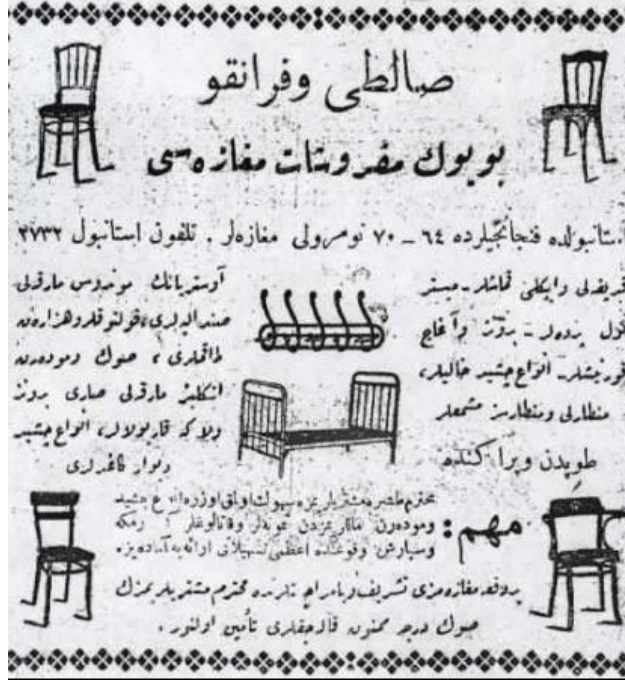 صالطی وفرانقو
بویوك مفروشات مغازه‌سی
استانبولده فنجانجیلرده ٦٤ – ٧٠ نومرولی مغازه‌لر . تلفون استانبول ٣٧٣٢
قریفلی وایپكلی قماشلر – میستر
تول پرده‌لر – برونز وآغاج
قورنیشلر – انواع چشید خالیلر،
منظارلی ومنظارسز مشمعلر
طوپدن وپراكنده
آوستریانك موندوس مارقه‌لی
صندالیه‌لری، قولتوقلر وهزاره‌ن
طاقملری ، صوك وموده‌رن
انكلیز مارقه‌لی صاری برونز
ولاكه قاریولالر، انواع چشید
دیوار كاغدلری
مهم :
محترم طشره مشتریلریمزه سهولت اولمق اوزره انواع چشید
وموده‌رن ماللریمزدن نمونه‌لر وقاتالوغلر
وسپارش وقوعنده اعظمی تسهیلاتی ارائه‌یه آماده‌یز.
بر دفعه مغازه‌مزی تشریف وبامراجعتلرنده محترم مشتریلریمزك
صوك درجه ممنون قاله‌جقلری تأمین اولنور .